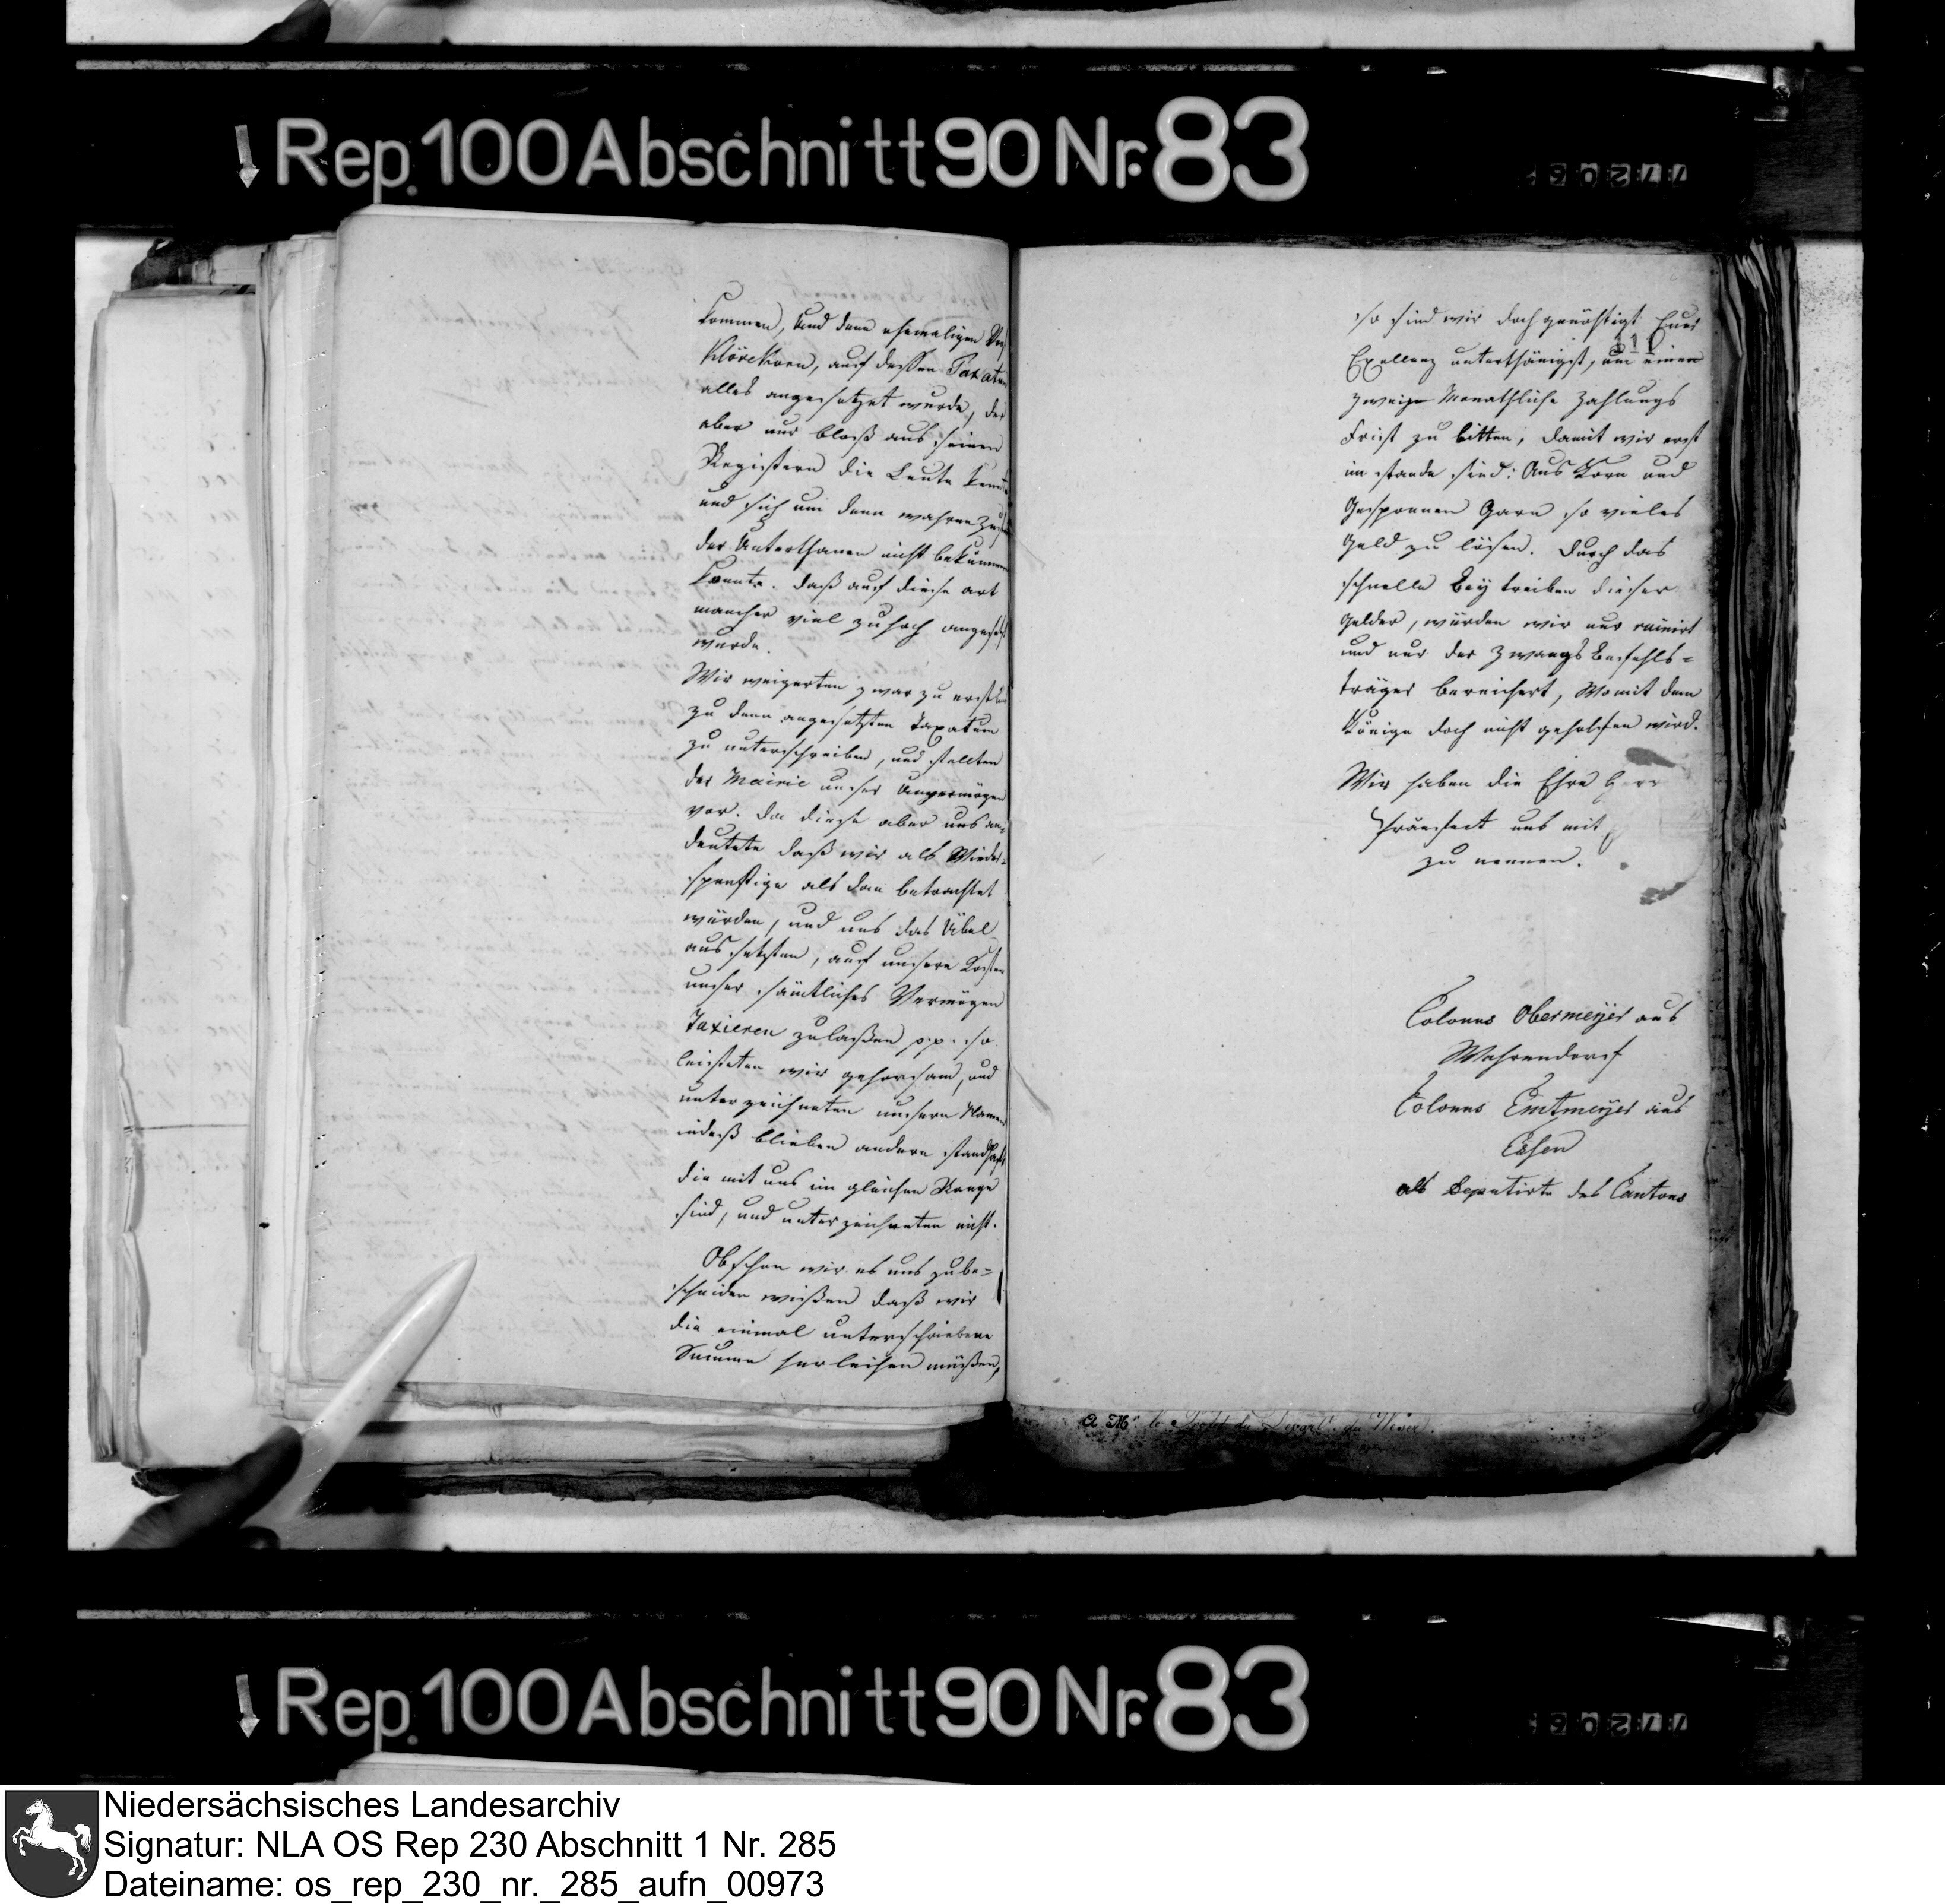 Rep. 100 Abschnitt 90 Nr. 83
kommen, und dem ehemaligen
Klörekorn, auf dessen Taxatum
alles angesetzet wurde, der
aber nur bloß aus seinen
Registern die Leute
und sich um denn wahren
der Unterthanen nicht
konnte. daß auf diese art
mancher viel zu hoch
wurde.
Wir weigerten zwar zu erst
zu denn angesetzten Taxatum
zu unterschreiben, und stellten
der Mairie unser Unvermögen
vor. da diese aber uns an-
deutete daß wir als Wieder-
spenstige als dan betrachtet
würden, und uns das Übel
aus setzten, auf unsere Kosten
unser sämtliches Vermögen
Taxieren zulaßen pp. so
leisteten wir gehorsam, und
unterzeichneten unsern Namen
indeß blieben andere standhaft
die mit uns im gleichen Range
sind, und unterzeichneten nicht.
Obschon wir es uns zube-
scheiden weißen daß wir
die einmal unterschriebene
Summe herleihen müßen,
so sind wir doch genöthigt Euer
Exellenz unterthänigst, um einen
zwei Monathliche Zahlungs
Frist zu bitten, damit wir erst
im stande sind: Aus Korn und
Gesponnen Garn so vieles
Geld zu lösen. Durch das
schnelle Bey treiben dieser
Gelder, würden wir nur ruinirt
und nur der Zwangs Befehls-
träger bereichert, Womit dem
Könige doch nicht geholfen wird.
Wir haben die Ehre Herr
Präefect uns mit
zu nennen.
Colonus Obermeyer aus
Wehrendorf
Colonus Emtmeyer aus
Essen
als Deputirte des Cantons
A Mr. le Préfet du Depart. du Weser.
Rep. 100 Abschnitt 90 Nr. 83
Niedersächsisches Landesarchiv
Signatur: NLA OS Rep 230 Abschnitt 1 Nr. 285
Dateiname: os_rep_230_nr._285_aufn_00973